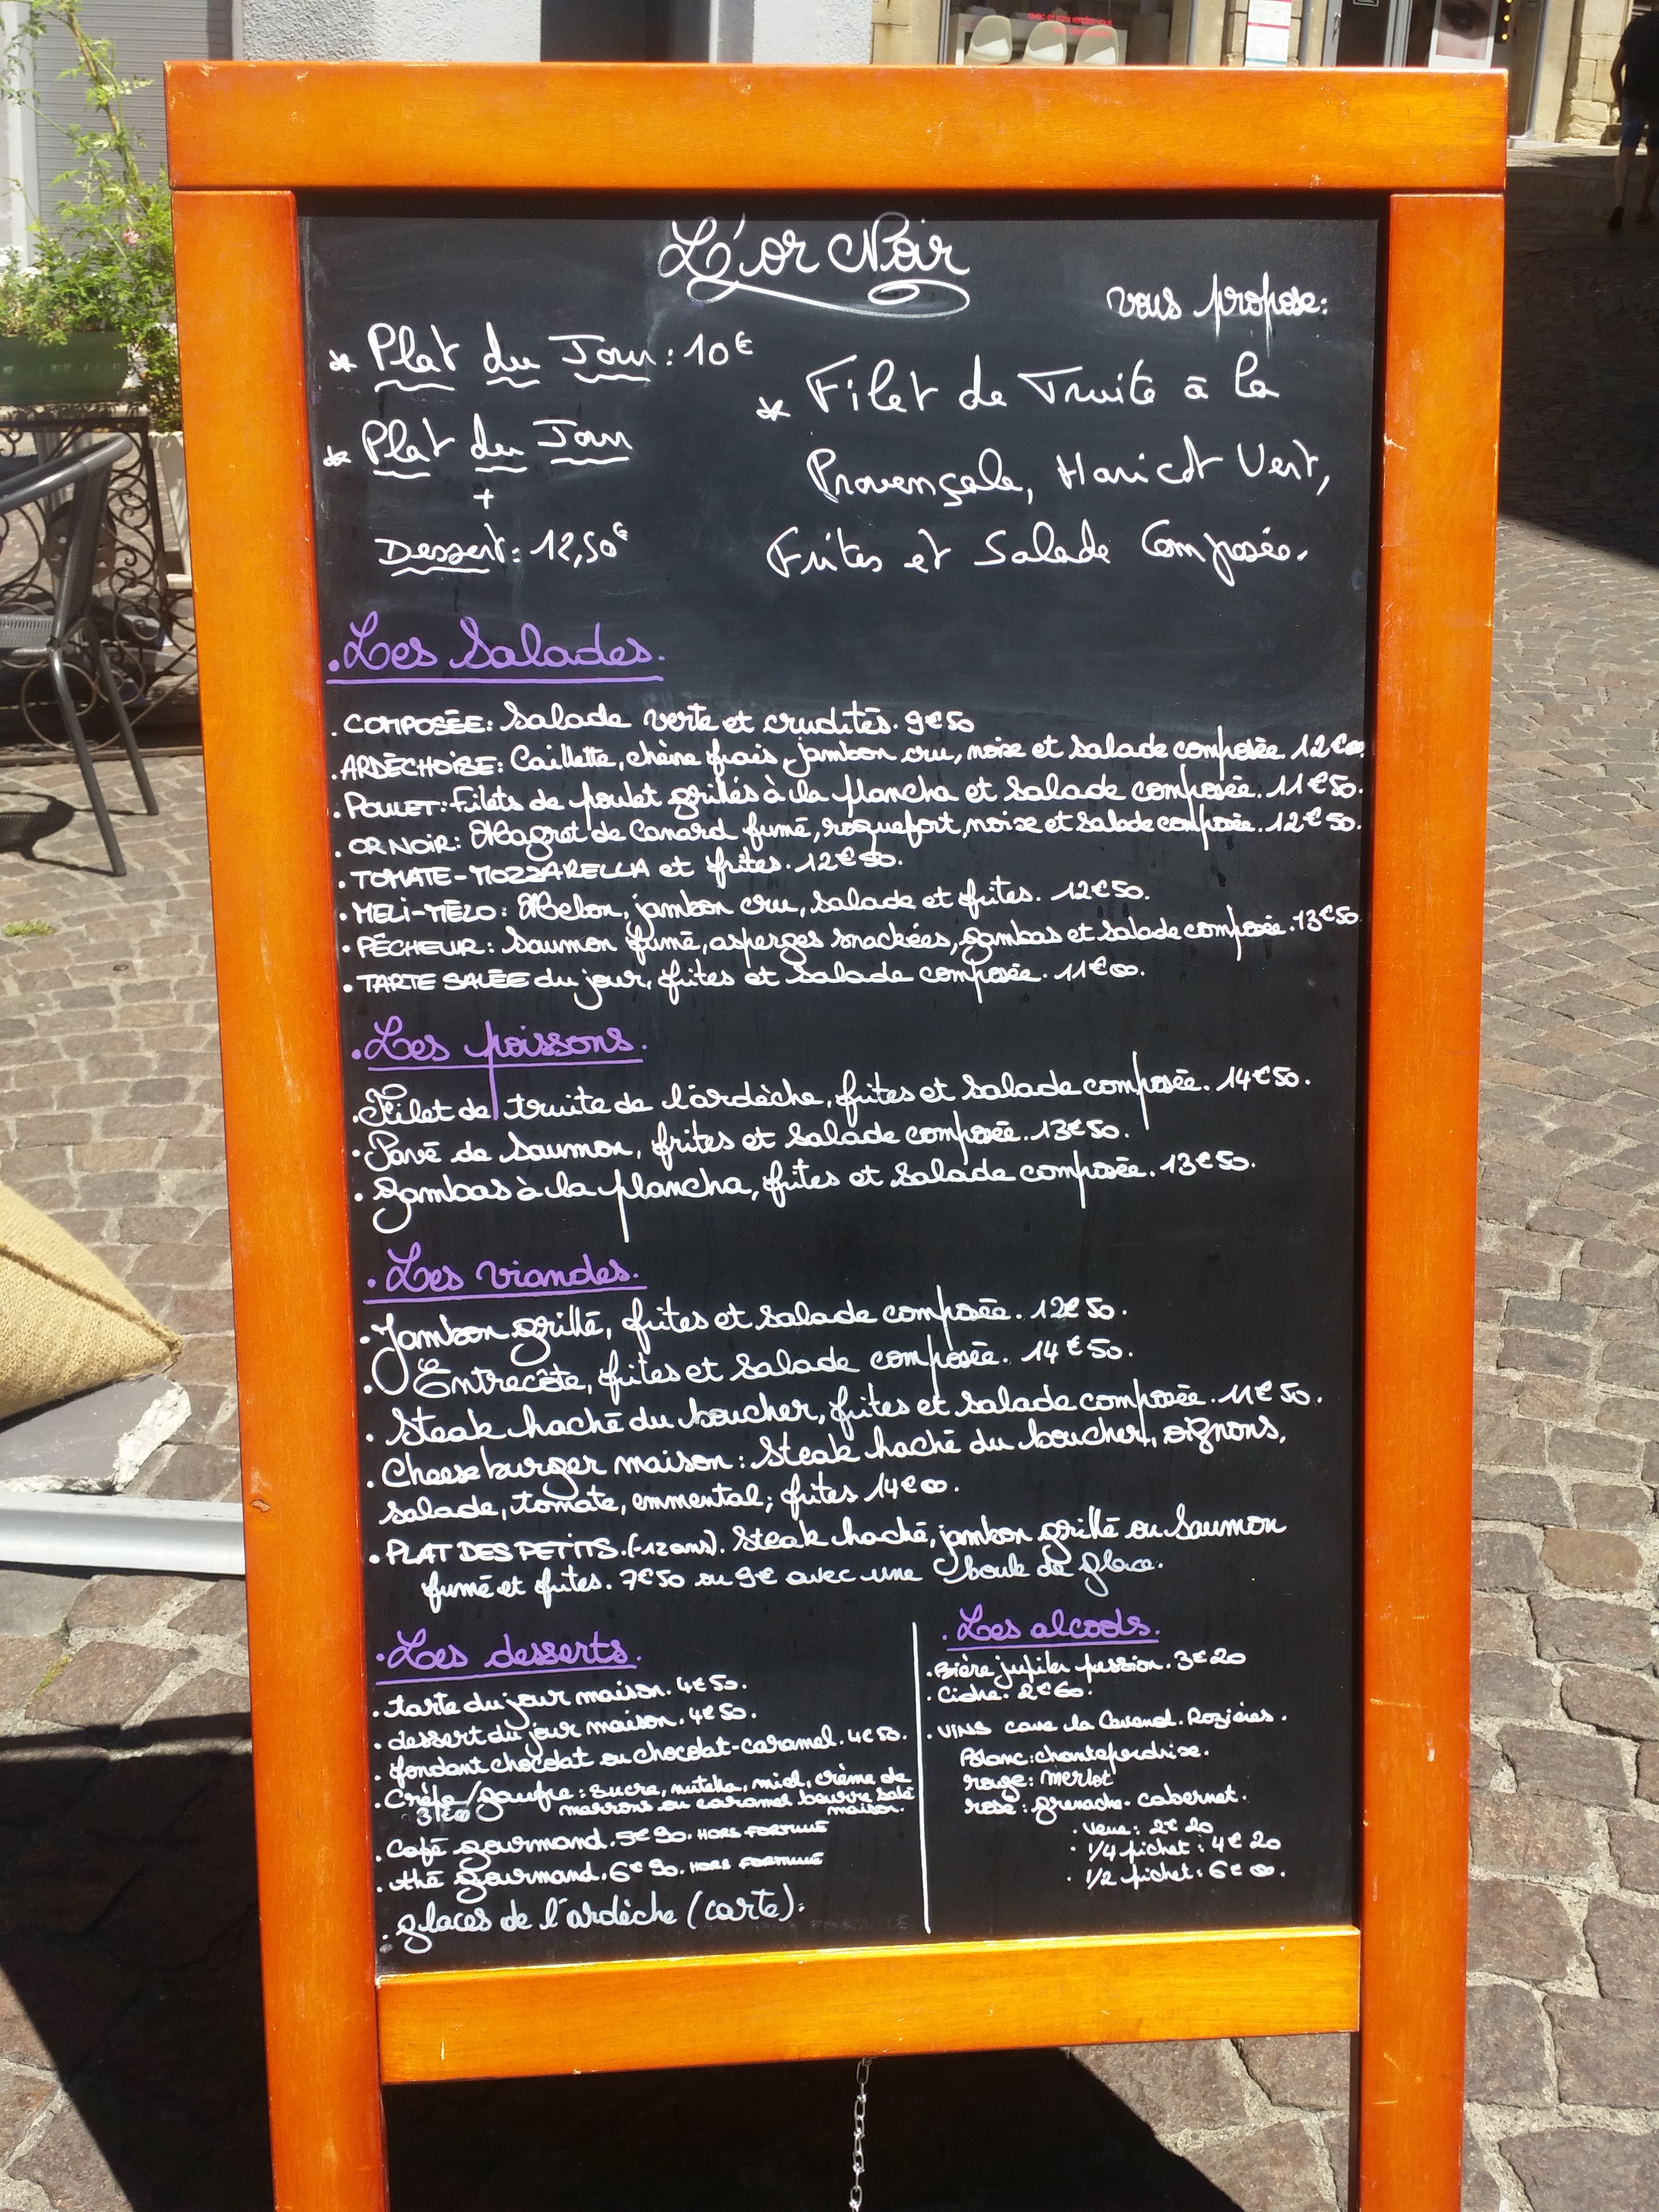 L'or Noir
vous propose:
* Plat du Jour : 10€
* Plat du Jour
+
Dessert : 12,50€
* Filet de Truite à la
Provençale, Haricot Vert,
Frites et Salade Composée.
. Les Salades.
. COMPOSÉE: Salade verte et crudités. 9€50
. ARDÈCHOISE: Caillette, chèvre frais, jambon cru, noix et salade composée. 12€00.
. POULET: Filets de poulet grillés à la plancha et salade composée. 11€50.
. OR NOIR: Magret de Canard fumé, roquefort, noix et salade composée. 12€50.
. TOMATE-MOZZARELLA et frites. 12€50.
. MELI-MÉLO: Melon, jambon cru, salade et frites. 12€50.
. PÊCHEUR: Saumon fumé, asperges snackées, gambas et salade composée. 13€50
. TARTE SALÉE du jour, frites et salade composée. 11€00.
. Les poissons.
. Filet de truite de l'ardèche, frites et salade composée. 14€50.
. Pavé de saumon, frites et salade composée. 13€50.
. Gambas à la plancha, frites et salade composée. 13€50.
. Les viandes.
. Jambon grillé, frites et salade composée. 12€50.
. Entrecôte, frites et salade composée. 14€50.
. Steak haché du boucher, frites et salade composée. 11€50.
. Cheeseburger maison: Steak haché du boucher, oignons,
salade, tomate, emmental; frites 14€00.
. PLAT DES PETITS. (-12ans). Steak haché, jambon grillé ou saumon
fumé et frites. 7€50 ou 9€ avec une boule de glace.
. Les desserts.
. tarte du jour maison. 4€50.
. dessert du jour maison. 4€50.
. fondant chocolat ou chocolat-caramel. 4€50.
. Crêpe/gaufre: sucre, nutella, miel, crème de
3€00 marrons ou caramel beurre salé
maison.
. Café gourmand. 5€90. HORS FORMULE
. thé gourmand. 6€90. HORS FORMULE
. glaces de l'ardèche (carte).
. Les alcools.
. Bière jupiler pression. 3€20
. Cidre. 2€60.
. VINS cave la Cévenol. Rozières.
Blanc: chanteperdrix.
rouge: merlot
rosé: grenache-cabernet.
. verre: 2€20
. 1/4 pichet: 4€20
. 1/2 pichet: 6€00.